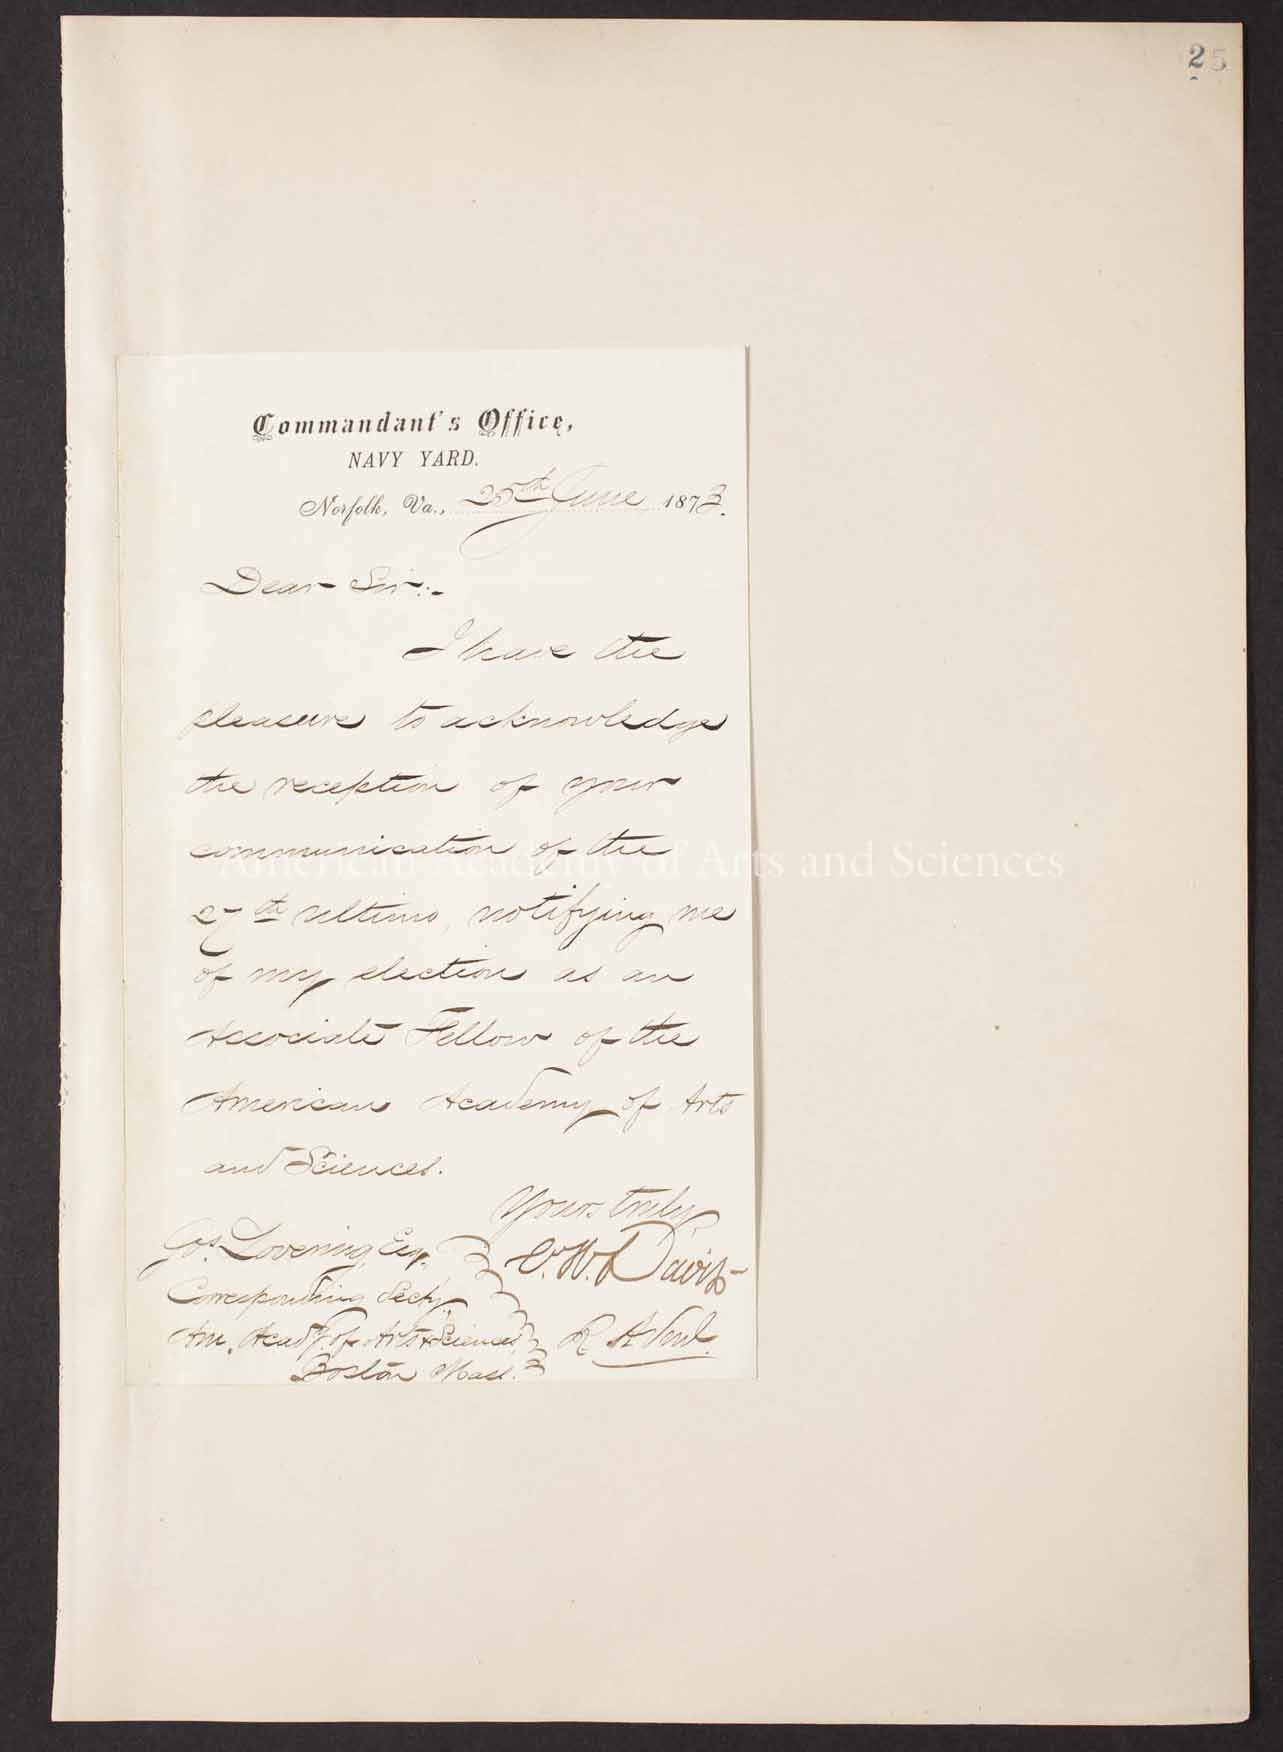 25
Commandant's Office,
NAVY YARD.
Norfolk, Va., 25th June 1873.
Dear Sir:-
I have the
pleasure to acknowledge
the reception of your
communication of the
American Academy of Arts and Sciences
27th ultimo, notifying me
of my election as an
Associate Fellow of the
American Academy of Arts
and Sciences.
Yours truly
C. H. Davis
R. Adml.
Jos. Lovering Esq.
Corresponding Secty.
Am. Acady. of Arts & Sciences
Boston Mass.